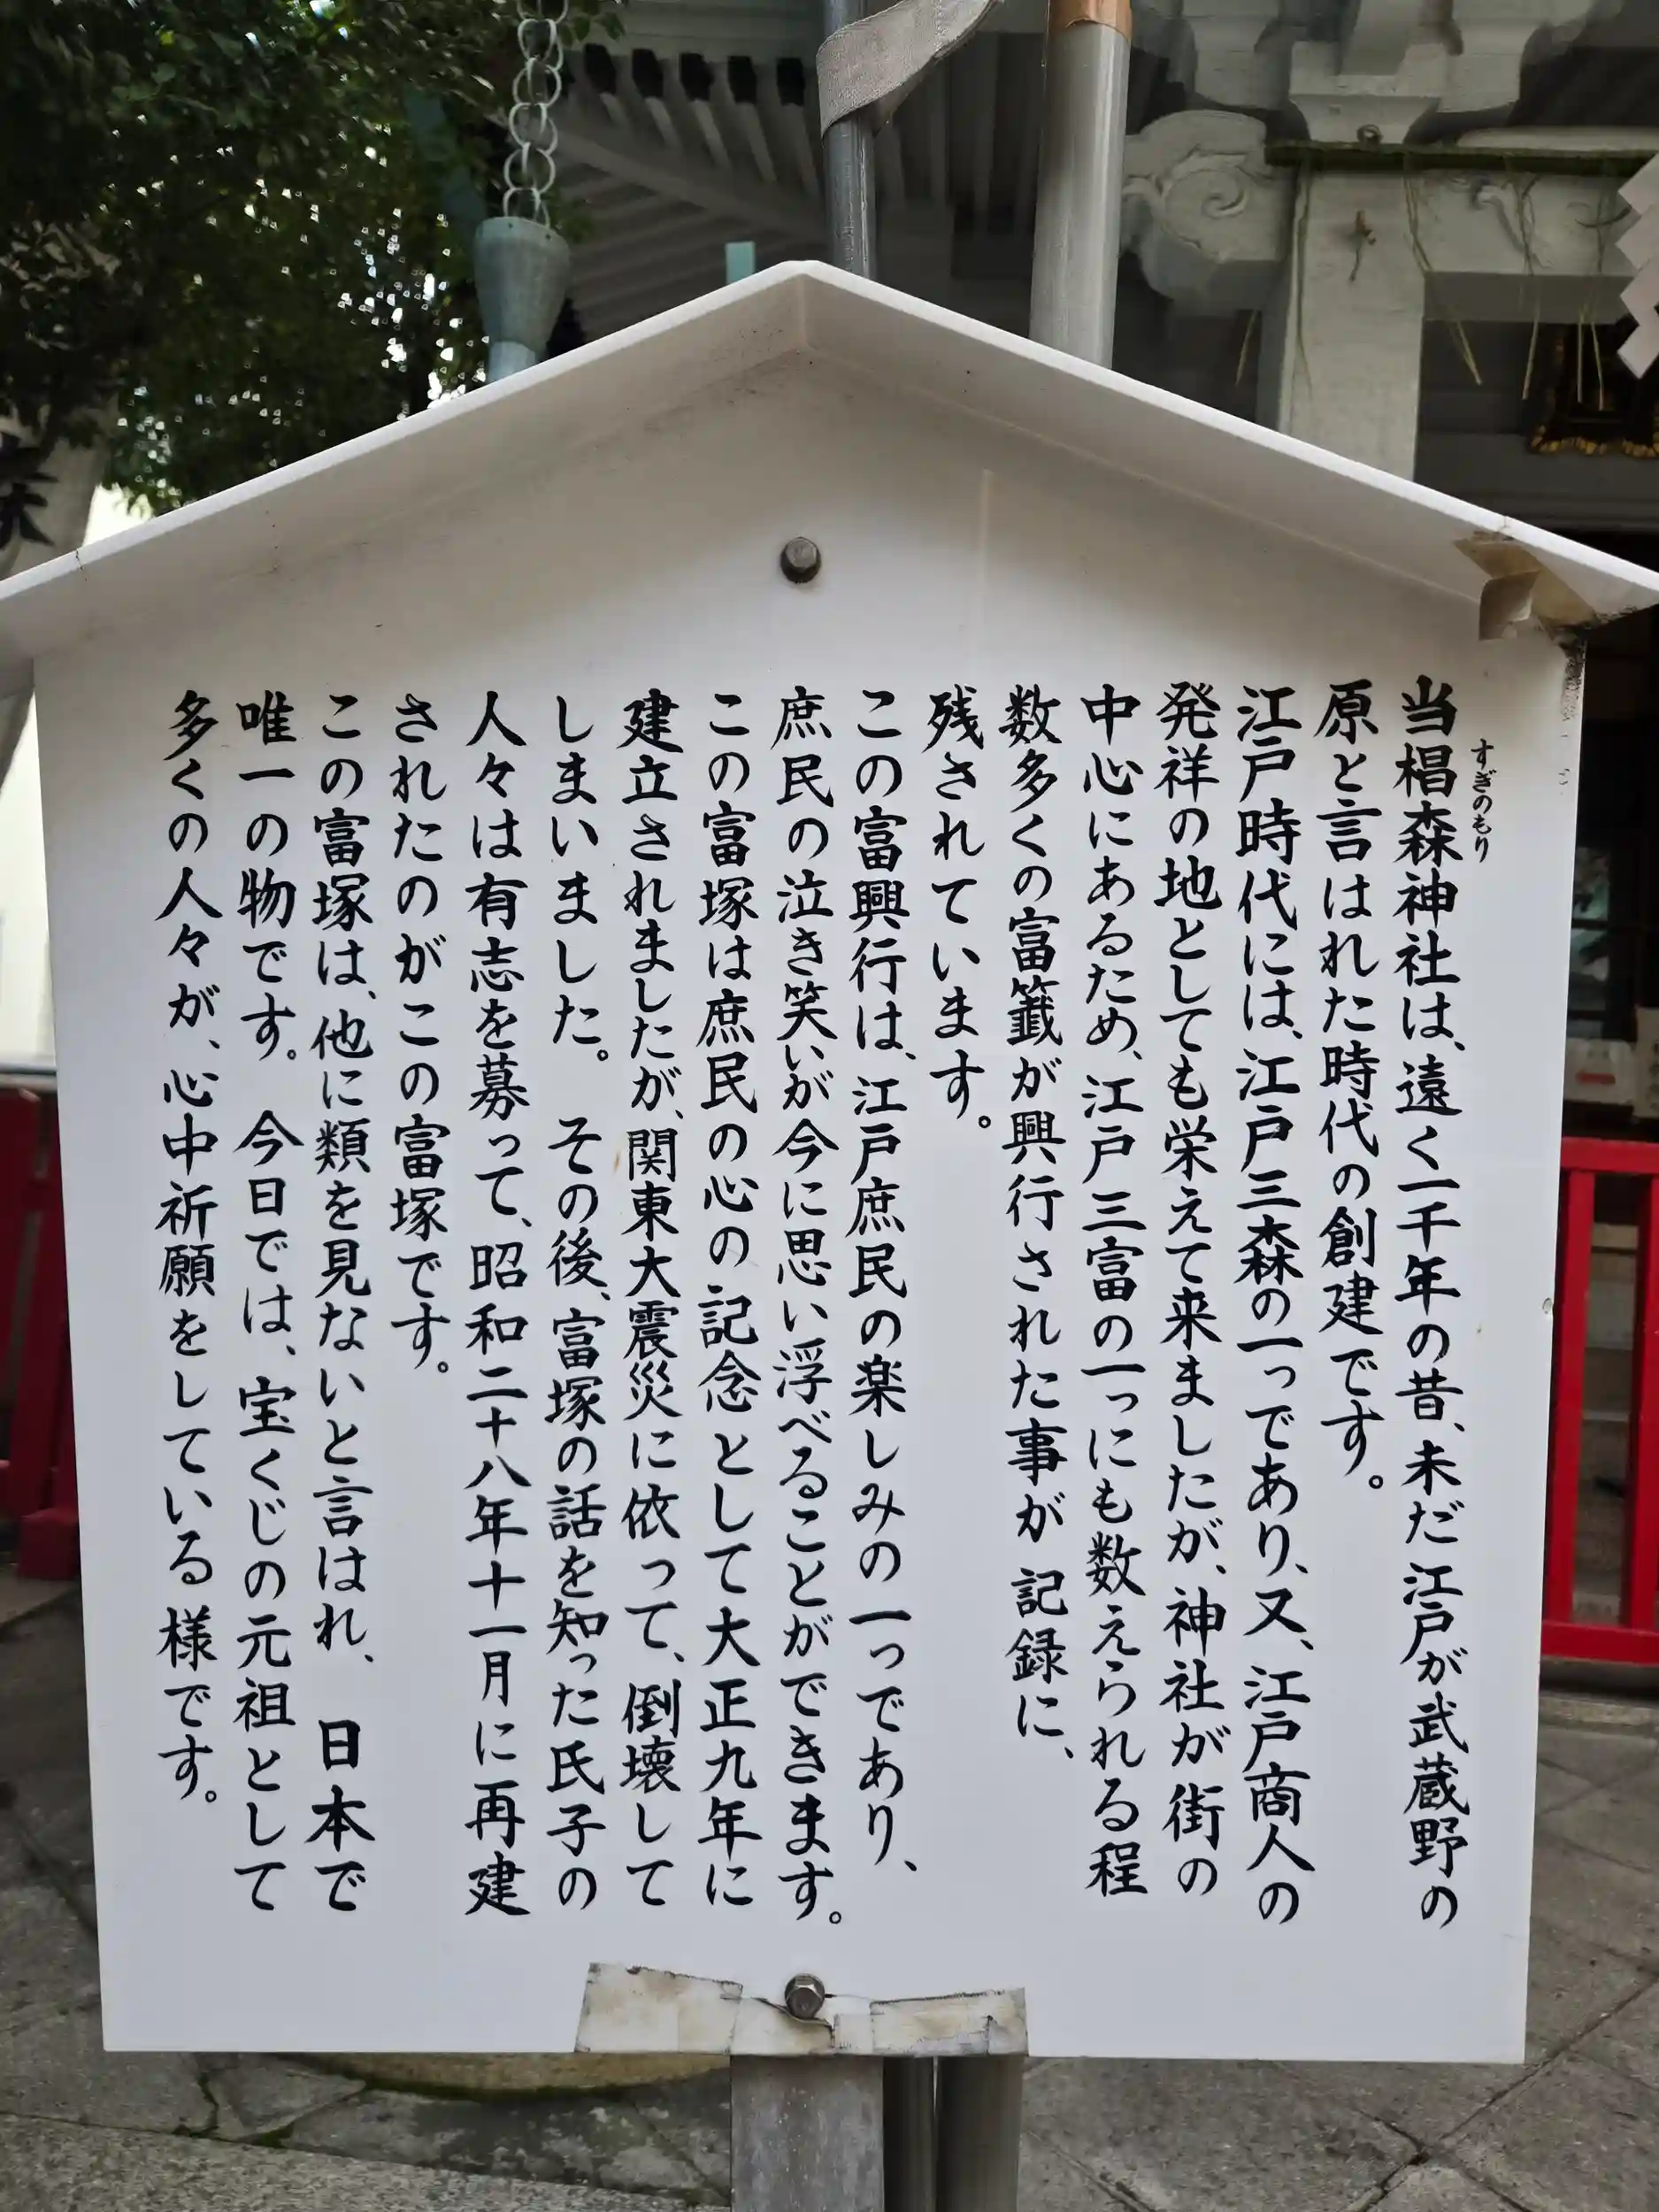 当椙森神社は、遠く一千年の昔、未だ江戸が武蔵野の
すぎのもり
原と言はれた時代の創建です。
江戸時代には、江戸三森の一っであり、又、江戸商人の
発祥の地としても栄えて来ましたが、神社が街の
中心にあるため、江戸三富の一っにも数えられる程
数多くの富籤が興行された事が 記録に、
残されています。
この富興行は、江戸庶民の楽しみの一っであり、
庶民の泣き笑いが今に思い浮べることができます。
この富塚は庶民の心の記念として大正九年に
建立されましたが、関東大震災に依って、倒壊して
しまいました。 その後、富塚の話を知った氏子の
人々は有志を募って、昭和二十八年十一月に再建
されたのがこの富塚です。
この富塚は、他に類を見ないと言はれ、 日本で
唯一の物です。 今日では、宝くじの元祖として
多くの人々が、心中祈願をしている様です。